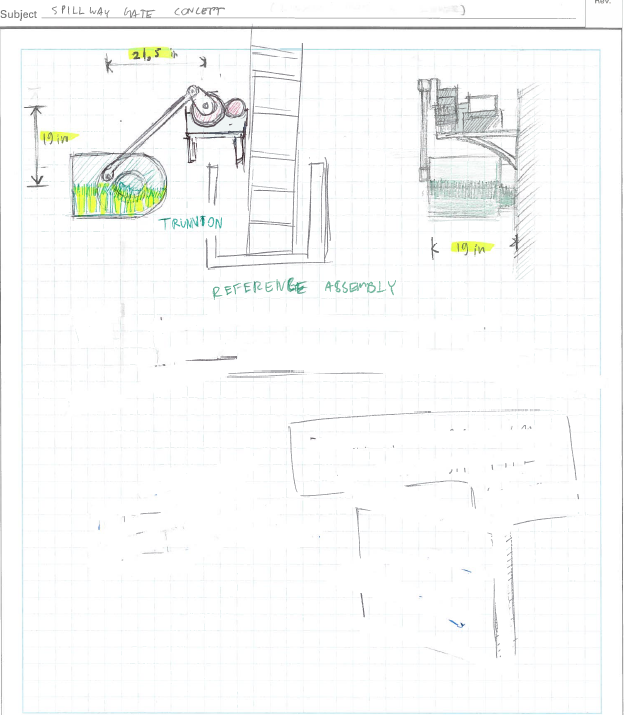 Rev.
Subject SPILLWAY GATE CONCEPT
21.5 in
19 in
TRUNNION
19 in
REFERENCE ASSEMBLY